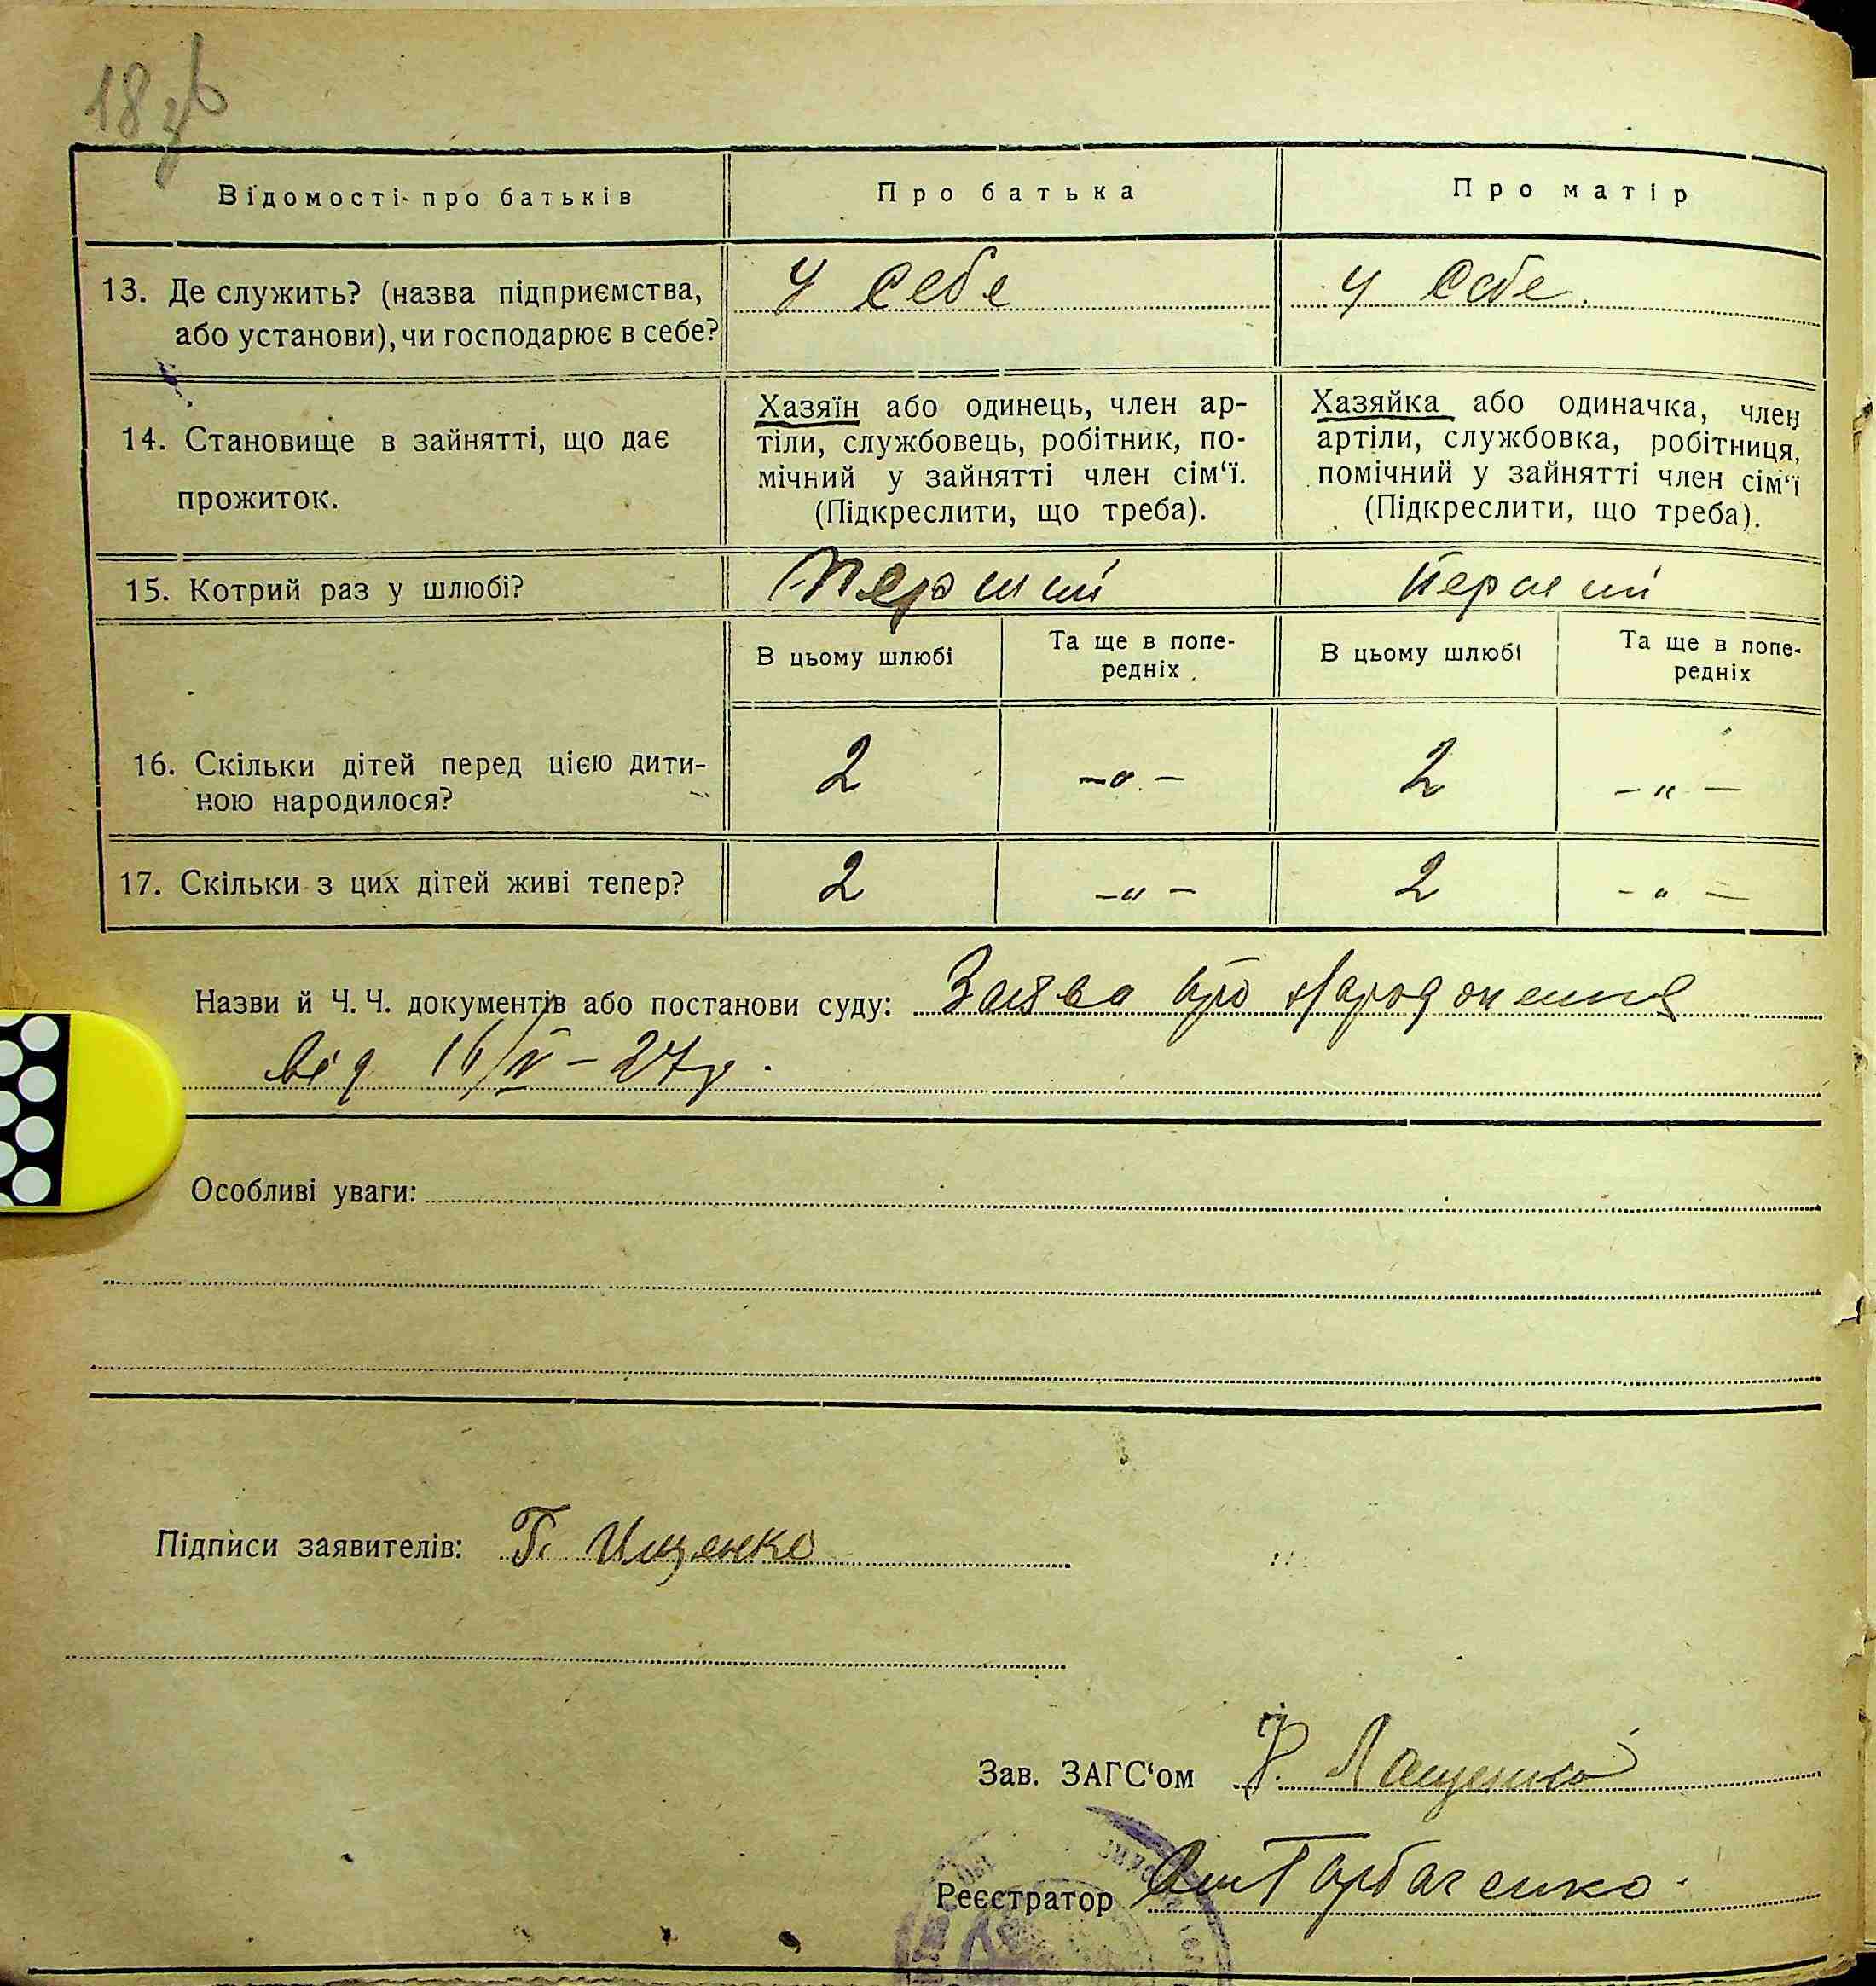 18 зв
Відомості про батьків Про батька Про матір
13. Де служить? (назва підприємства, У себе у себе.
або установи), чи господарює в себе?
14. Становище в зайнятті, що дає
прожиток.
Хазяїн або одинець, член ар-
тіли, службовець, робітник, по-
мічний у зайнятті член сім‘ї.
(Підкреслити, що треба).
Хазяйка або одиначка, член
артіли, службовка, робітниця,
помічний у зайнятті член сім‘ї
(Підкреслити, що треба).
15. Котрий раз у шлюбі? Перший Перший
В цьому шлюбі Та ще в попе-
редніх
В цьому шлюбі Та ще в попе-
редніх
16. Скільки дітей перед цією дити-
ною народилося? 2 – „ – 2 – „ –
17. Скільки з цих дітей живі тепер? 2 – „ – 2 – „ –
Назви й Ч. Ч. документів або постанови суду: Заява про народження
від 16/IV – 27р.
Особливі уваги:
Підписи заявителів: Г. Ищенко
Зав. ЗАГС‘ом Лащенко
Реєстратор Горбаченко.